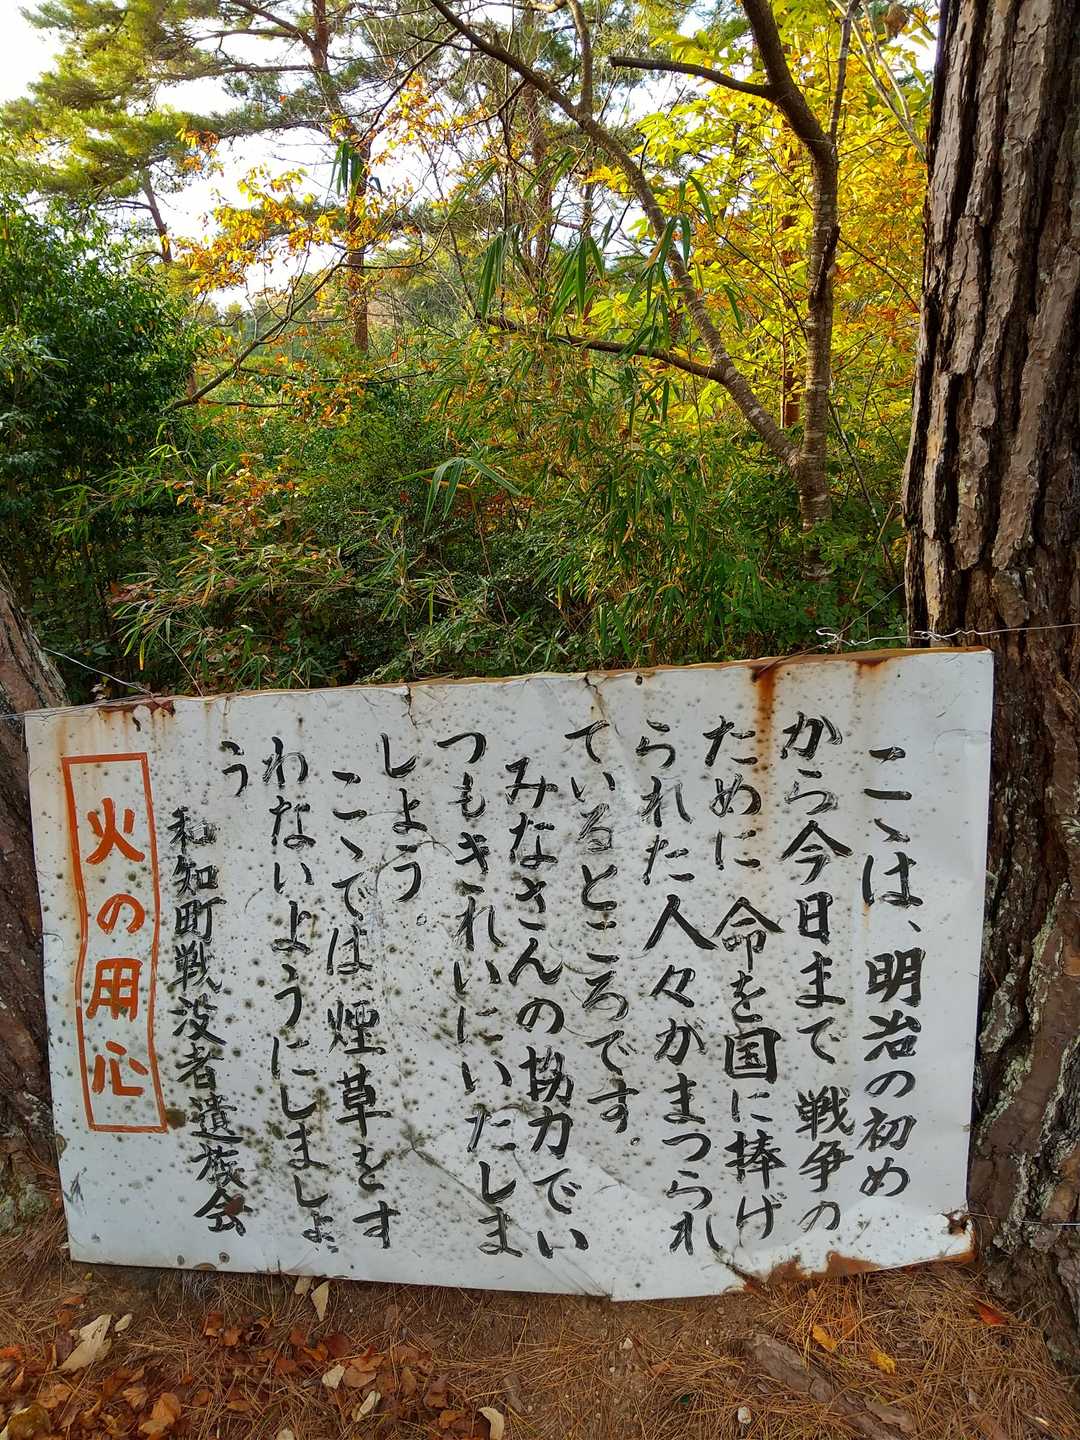 こゝは、明治の初め
から今日まで戦争の
ために命を国に捧げ
られた人々がまつられ
ているところです。
みなさんの協力でい
つもきれいにいたしま
しよう。
こゝでは煙草をす
わないようにしましよ
う
和知町戦没者遺族会
火の用心